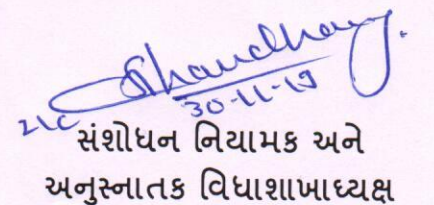 Chaudhary.
30-11-19
સંશોધન નિયામક અને
અનુસ્નાતક વિધાશાખાધ્યક્ષ